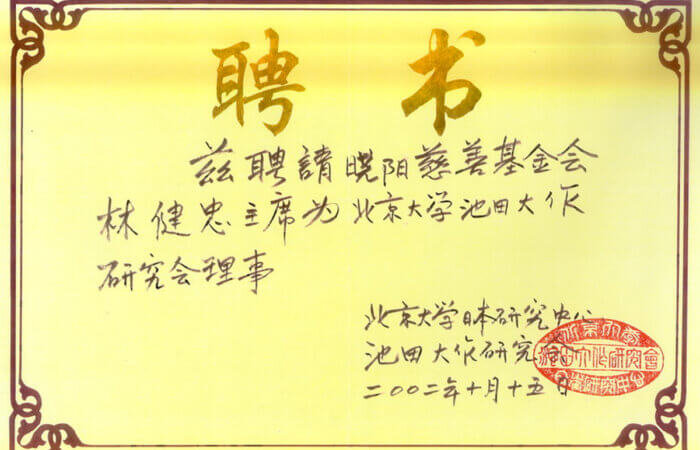 聘书
兹聘請晓阳慈善基金会
林健忠主席为北京大学池田大作
研究会理事
北京大学日本研究中心
池田大作研究会
二〇〇二年十月十五日
池田大作研究會